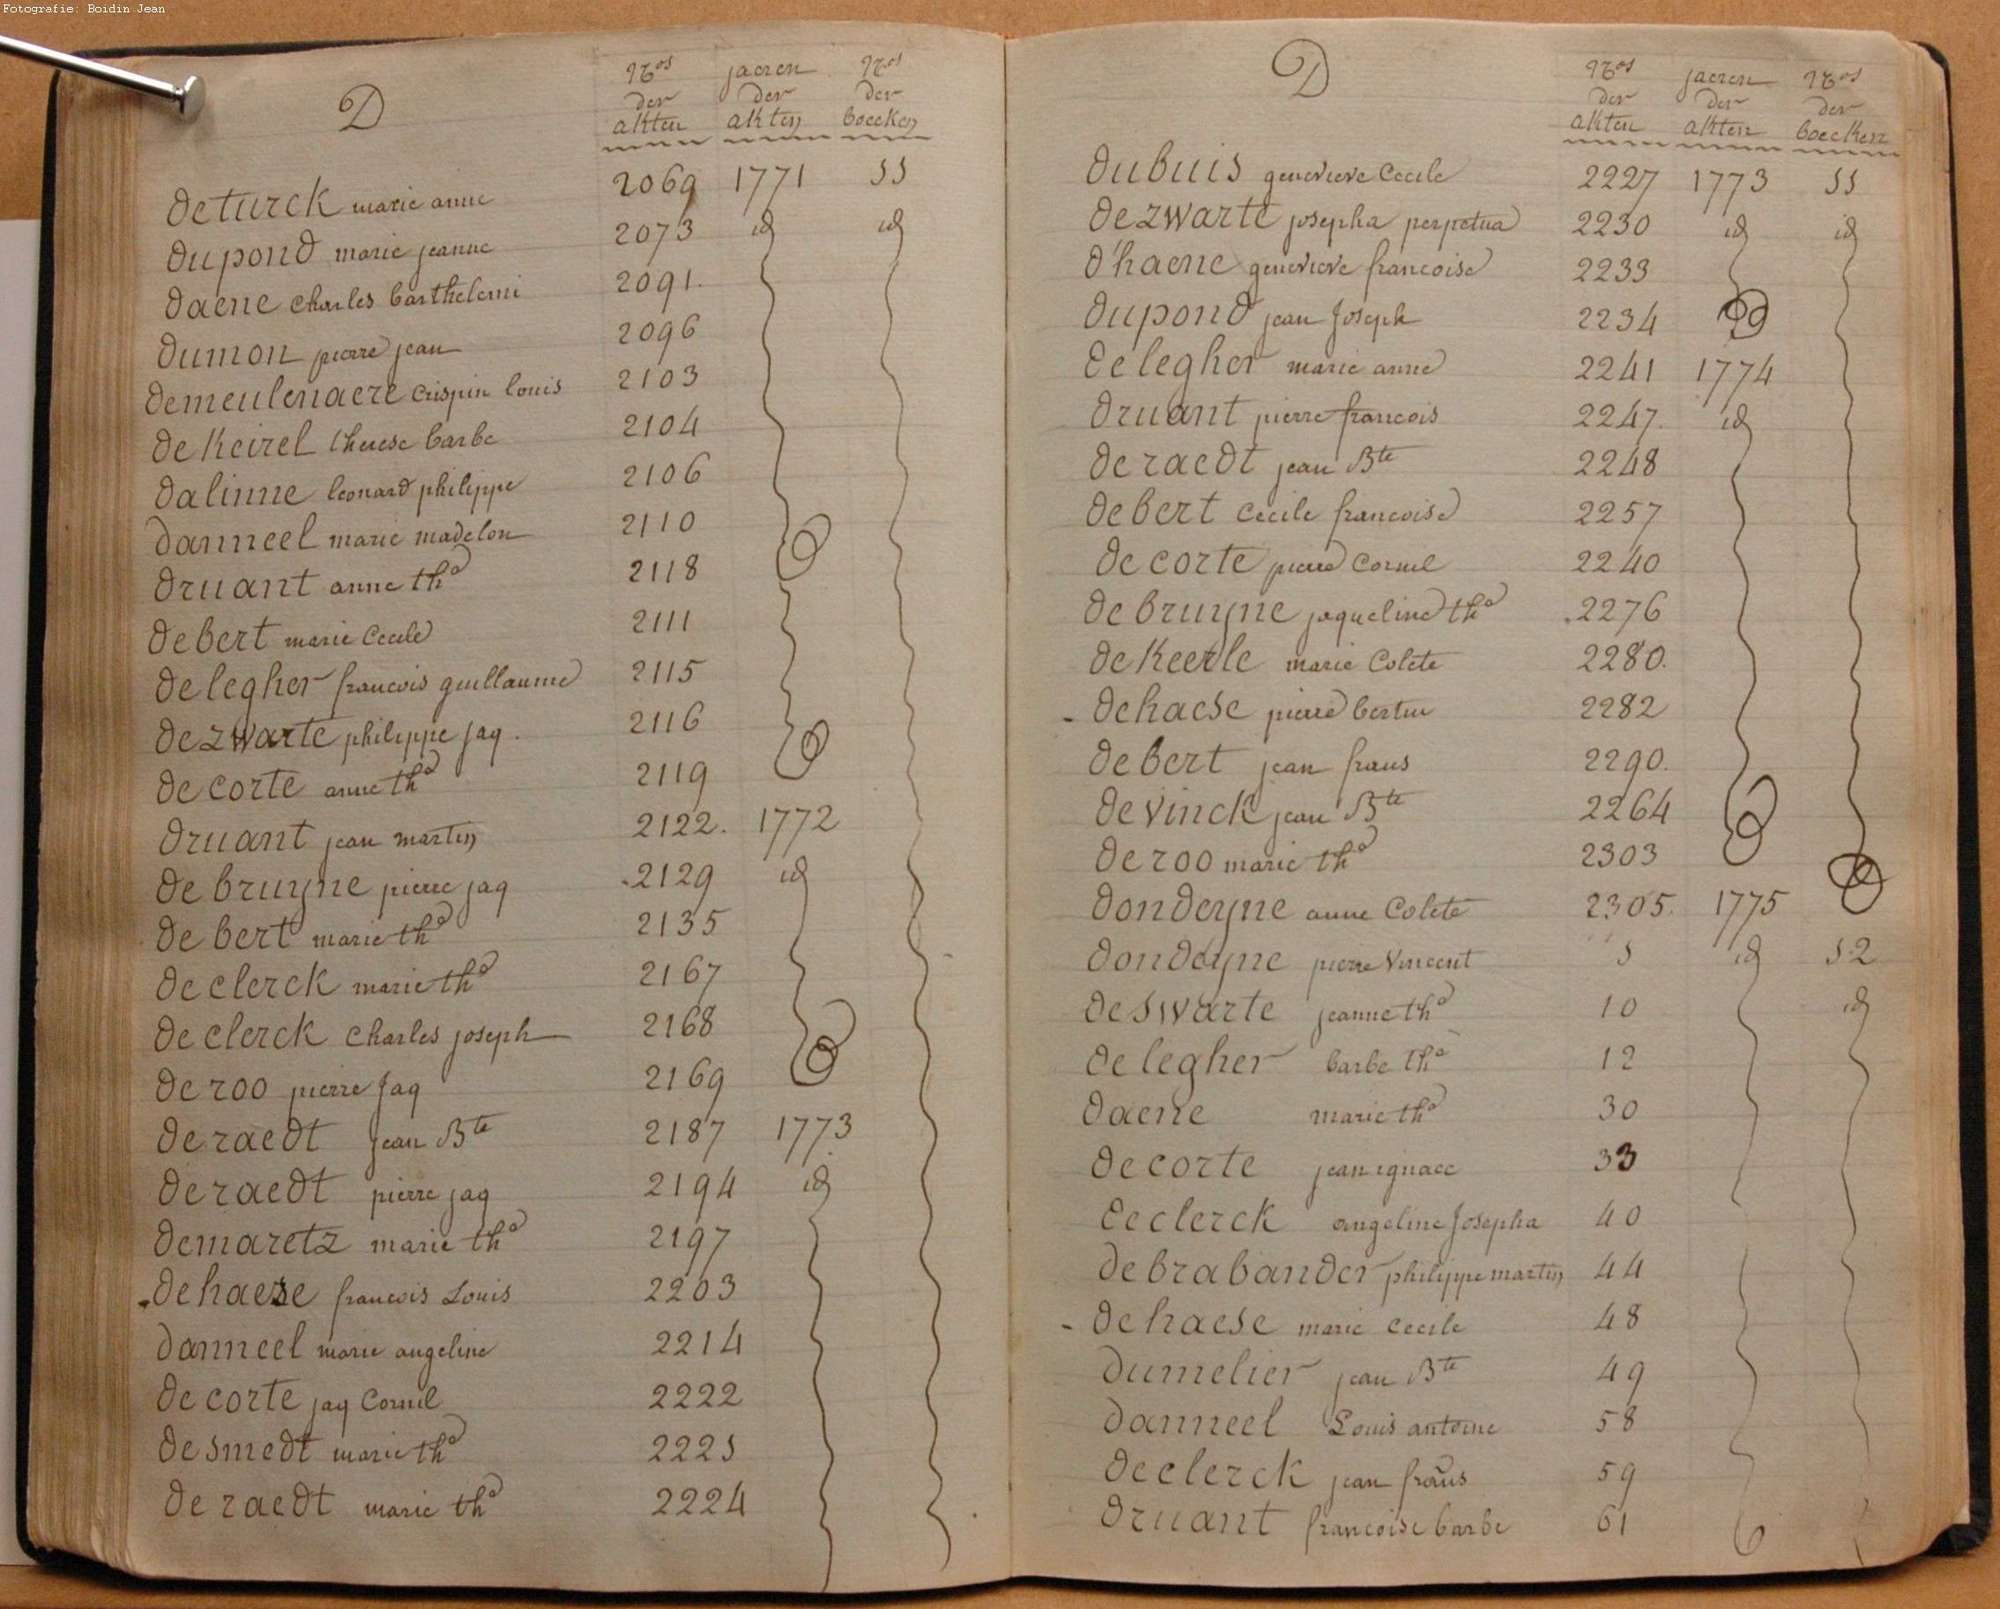 Fotografie: Boidin Jean
D
Nos jaeren Nos
der der der
akten akten boecken
deturck marie anne 2069 1771 51
dupond marie jeanne 2073 id id
daene charles barthelemi 2091.
dumon pierre jean 2096
demeulenaere crispin louis 2103
de keirel therese barbe 2104
dalinne leonard philippe 2106
danneel marie madelon 2110
druant anne tha 2118
de bert marie Cecile 2111
de legher francois guillaume 2115
de zwarte philippe jaq. 2116
de corte anne tha 2119
druant jean martin 2122. 1772
de bruyne pierre jaq 2129 id
de bert marie tha 2135
de clerck marie tha 2167
de clerck charles joseph 2168
de roo pierre jaq 2169
de raedt jean Bte 2187 1773
de raedt pierre jaq 2194 id
demaretz marie tha 2197
dehaese francois Louis 2203
danneel marie angeline 2214
de corte jaq Cornil 2222
de smedt marie tha 2225
de raedt marie tha 2224
D
Nos jaeren Nos
der der der
akten akten boecken
dubuis genevieve Cecile 2227 1773 51
de zwarte josepha perpetua 2230 id id
d'haene genevieve francoise 2233
dupond jean Joseph 2234
de legher marie anne 2241 1774
druant pierre francois 2247. id
de raedt jean Bte 2248
de bert Cecile francoise 2257
de corte pierre Cornil 2240
de bruyne jaqueline tha 2276
de keerle marie Colete 2280.
- dehaese pierre bertin 2282
de bert jean frans 2290.
de vinck jean Bte 2264
de roo marie tha 2303
dondeyne anne Colete 2305. 1775
dondeyne pierre Vincent 5 id 52
de swarte jeanne tha 10 id
de legher barbe tha 12
daene marie tha 30
de corte jean ignace 33
de clerck angeline Josepha 40
de brabander philippe martin 44
- de haese marie Cecile 48
dumelier jean Bte 49
danneel Louis antoine 58
de clerck jean frans 59
druant francoise barbe 61